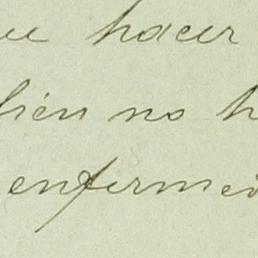 ue hacer
bién no h
enferme